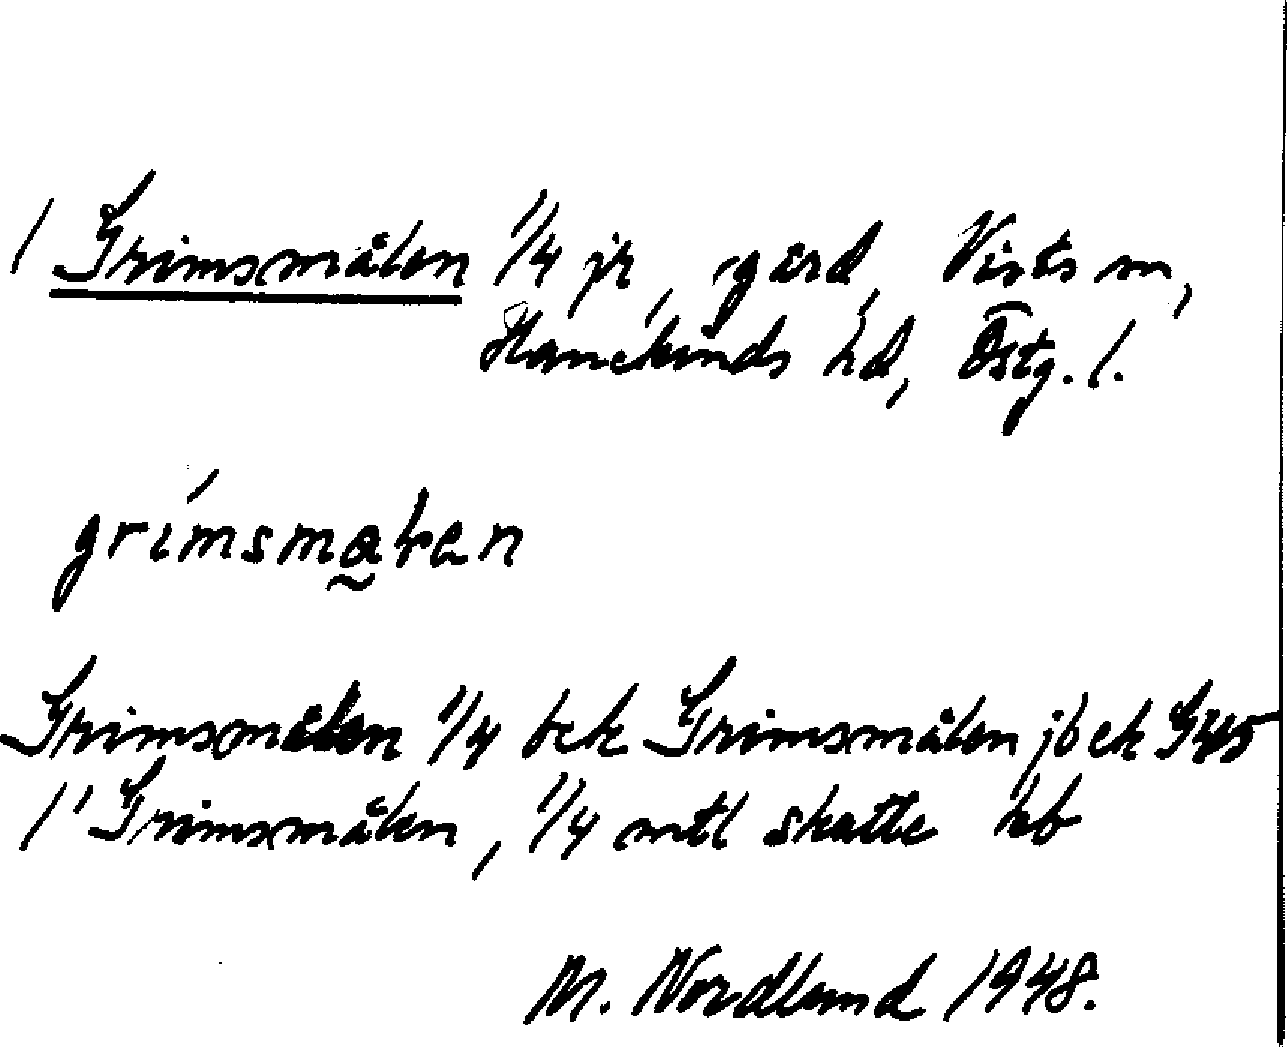 1 Grimsmålen 1/4 jr, gård, Vists sn,
Hanekinds hd, Östg. l.
grímsma̰ƚen
Grimsmålen 1/4 bek Grimsmålen jb ek
1' Grimsmålen, 1/4 mtl skatte kb
M. Nordlund 1948.